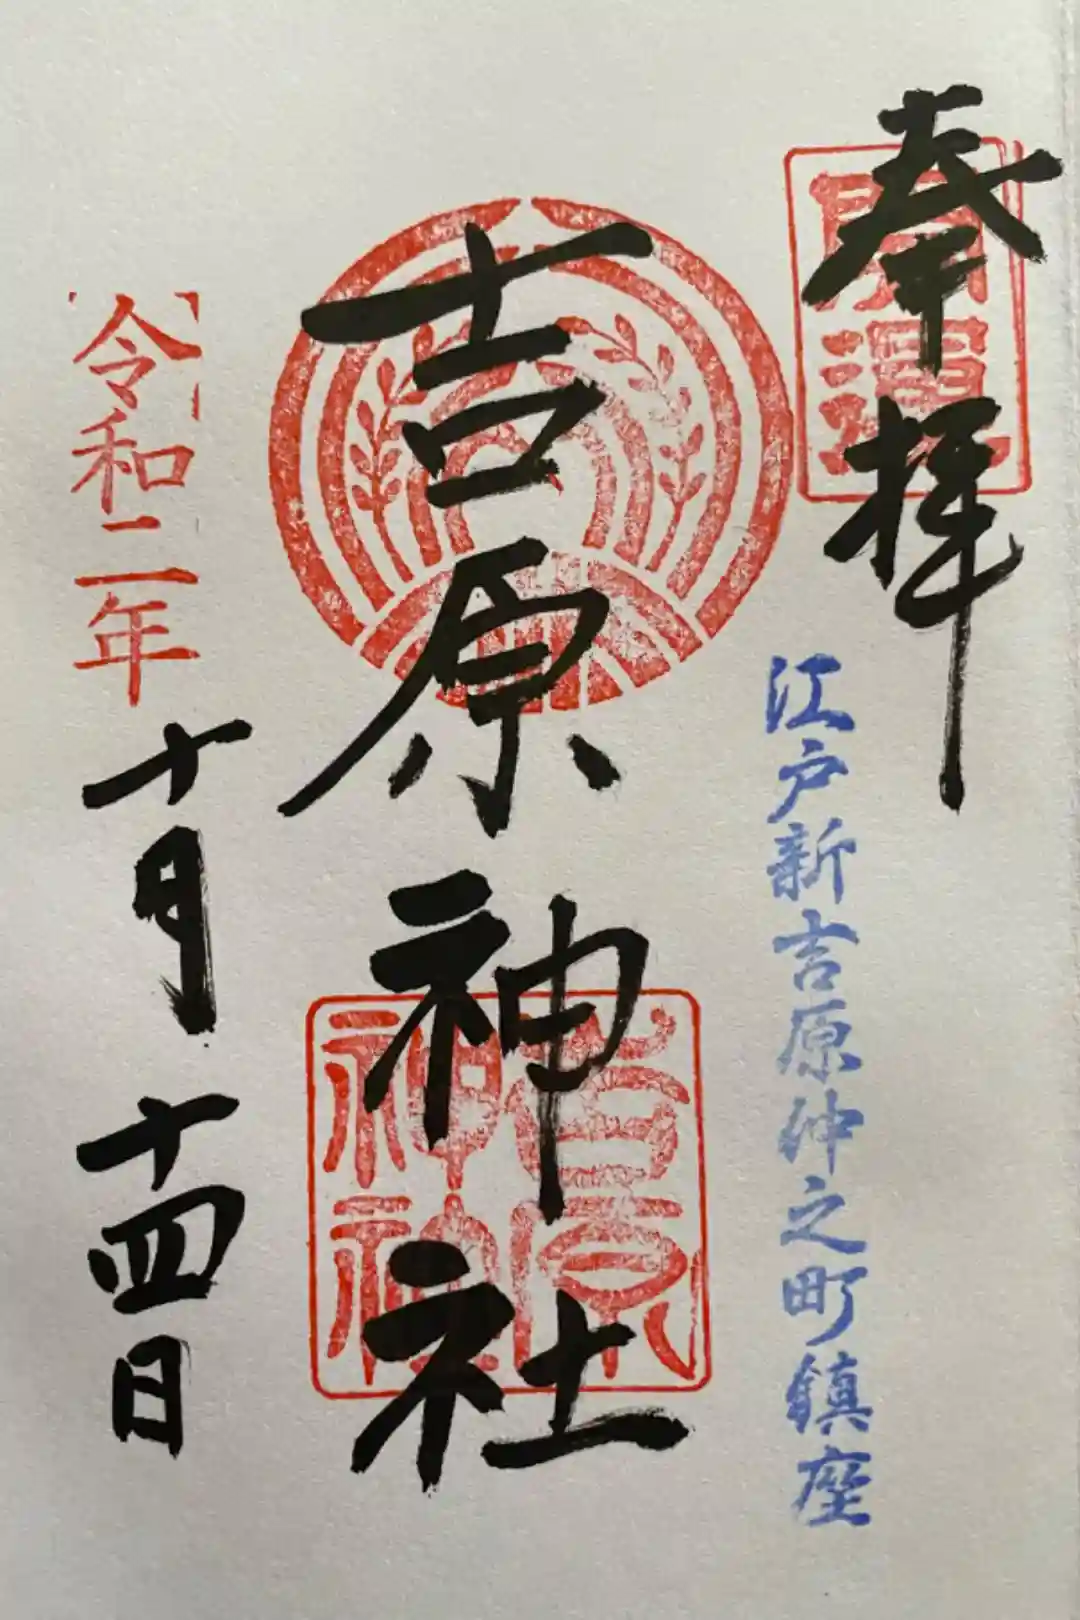 奉拝
開運
江戸新吉原仲之町鎮座
吉原神社
吉原
神社
令和二年
十月
十四日